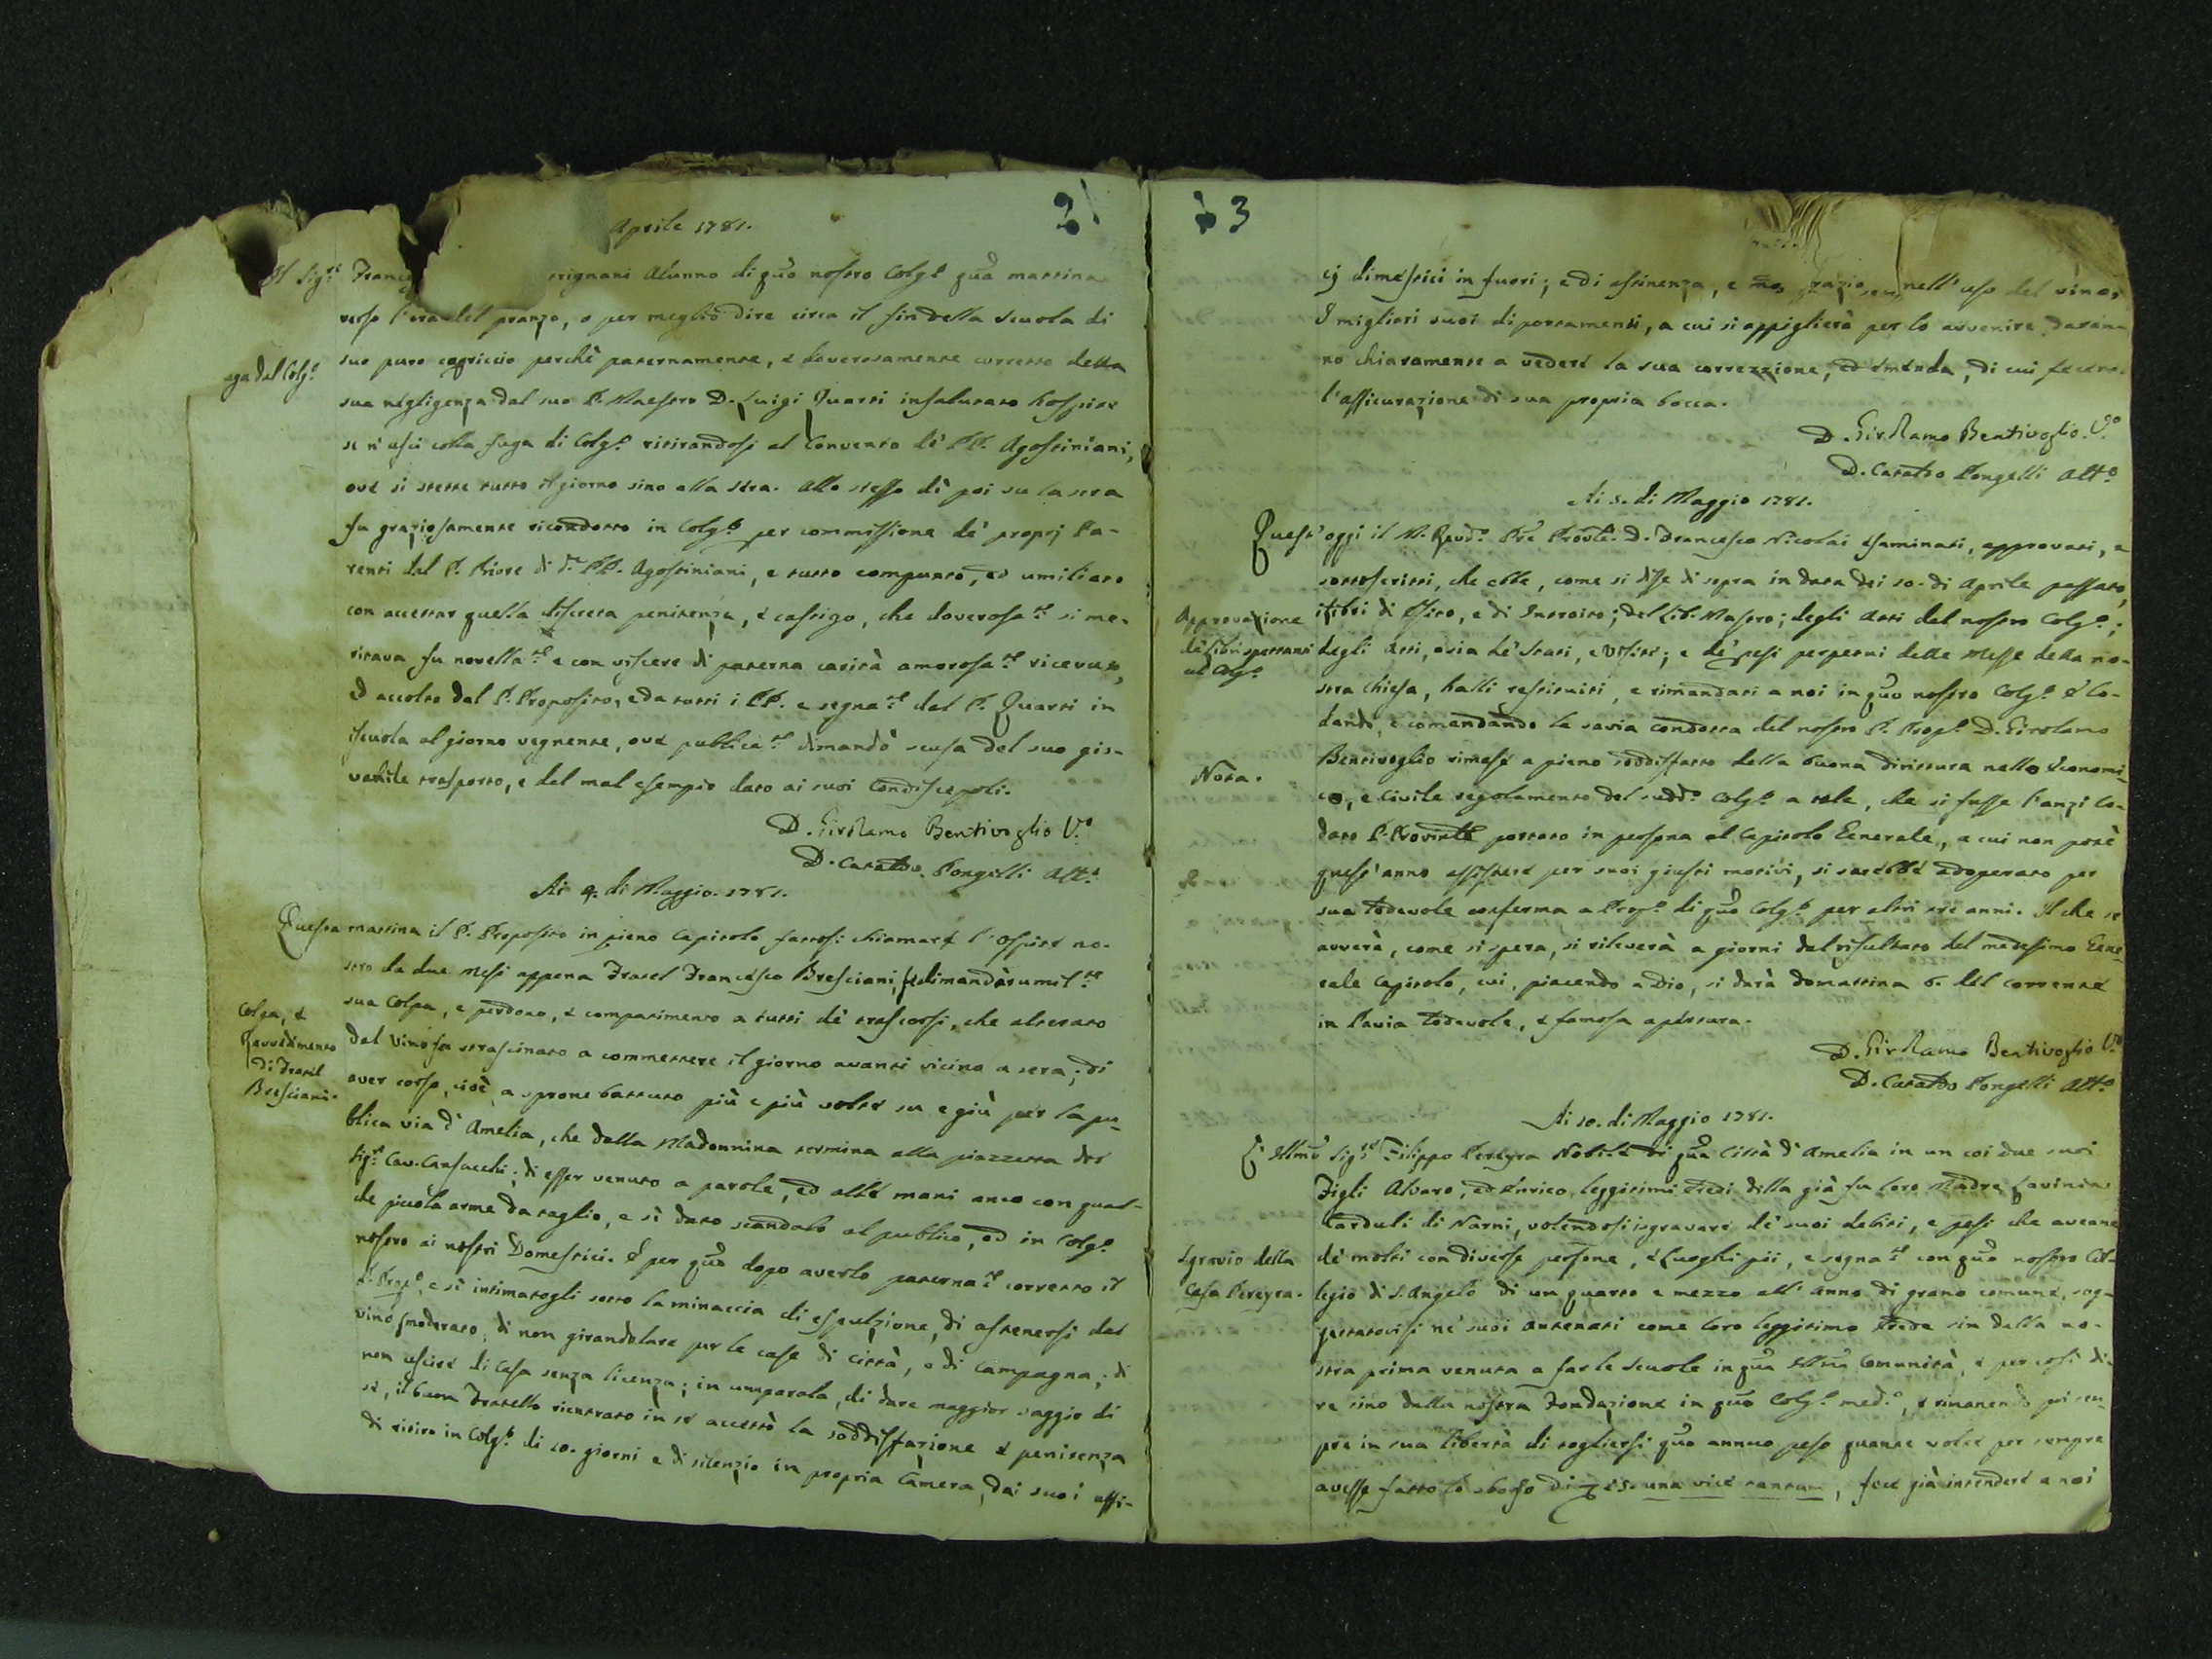 Aprile 1781.
21
Il Sig.re Franc trignani Alunno di q̃to nostro Colg.o q̃ta mattina
verso l'ora del pranzo, o per meglio dire circa il fin della Scuola di
suo puro capriccio perchè paternamente, e doverosamente corretto della
aga dal Colg.o
sua negligenza dal suo P. Maestro D. Luigi Quarti insalutato hospite
se n'uscì colla fuga di Colg.o ritirandosi al Convento de' PP. Agostiniani,
ove si stette tutto il giorno sino alla sera. Allo stesso dì poi su la sera
fu graziosamente ricondotto in Colg.o per commissione de' proprj Pa-
renti dal P. Priore di d.i PP. Agostiniani, e tutto compunto, ed umiliato
con accettar quella discreta penitenza, e castigo, che doverosa.te si me-
ritava fu novella.te e con viscere di paterna carità amorosa.te ricevuto,
ed accolto dal P. Proposito, e da tutti i PP. e segna.te dal P. Quarti in
iscuola al giorno vegnente, ove publica.te dimandò scusa del suo gio-
vanile trasporto, e del mal esempio dato ai suoi Condiscepoli.
D. Girolamo Bentivoglio V.o
D. Cataldo Pongelli Att.o
Ai 4. di Maggio. 1781.
Questa mattina il P. Proposito in pieno Capitolo fattosi chiamare l'ospite no-
stro da due Mesi appena Fratel Francesco Bresciani, fe dimandàr umil.te
Colpa, e
Ravvedimento
di Fratel
Bresciani.
sua Colpa, e perdono, e compatimento a tutti de' trascorsi, che alterato
dal Vino fu strascinato a commettere il giorno avanti vicino a sera; di
aver corso, cioè, a sprone battuto più e più volte su e giù per la pu-
blica via d'Amelia, che dalla Madonnina termina alla piazzetta del
Sig.re Cav. Cansacchi; di esser venuto a parole, ed alle mani anco con qual-
che picciola arme da taglio, e sì dato scandalo al publico, ed in Colg.o
nostro ai nostri Domestici. E per q̃to dopo averlo paterna.te corretto il
P. Prop.o, e sì intimatogli sotto la minaccia di espulzione, di astenersi dal
vino smoderato, di non girandolare per le case di Città, o di Campagna; di
non uscire di Casa senza licenza; in una parola, di dare maggior saggio di
sè, il buon Fratello rientrato in se accettò la soddisfazione e penitenza
di ritiro in Colg.o di 10. giorni e di silenzio in propria Camera, dai suoi uffi-
23
cj dimestici in fuori; e di astinenza, e nell'uso del vino.
I migliori suoi diportamenti, a cui si appiglierà per lo avvenire daran-
no chiaramente a vedere la sua correzzione, ed emenda, di cui fecene
l'assicurazione di sua propria bocca.
D. Girolamo Bentivoglio V.o
D. Cataldo Pongelli Att.o
Ai 5. di Maggio 1781.
Quest'oggi il M. Revd.o Pre Provle. D. Francesco Nicolai esaminati, approvati, e
sottoscritti, che ebbe, come si disse di sopra in data dei 10. di Aprile passato,
Approvazione
de' libri spettanti
al Colg.o
i libri di Esito, e di Introito; del Lib. Mastro; degli Atti del nostro Colg.o;
degli Atti, osia de' Stati, e Visite; e de' pesi perpetui delle Messe della no-
stra Chiesa, halli restituiti, e rimandati a noi in q̃to nostro Colg.o E lo-
dando, e comendando la savia condotta del nostro P. Prop.o D. Girolamo
Nota.
Bentivoglio rimase a pieno soddisfatto della buona dirittura nello Economi-
co, e Civile regolamento del sudd.o Colg.o a tale, che si fusse l'anzi lo-
dato P. Provinle portato in persona al Capitolo Generale, a cui non potè
quest'anno assistere per suoi giusti motivi, si sarebbe adoperato per
sua lodevole conferma a Prop.o di q̃to Colg.o per altri tre anni. Il che se
avverà, come si spera, si rileverà a giorni dal risultato del medesimo Gene-
rale Capitolo, cui, piacendo a Dio, si darà domattina 6. del corrente
in Pavia lodevole, e famosa apertura.
D. Girolamo Bentivoglio V.o
D. Cataldo Pongelli Att.o
Ai 10. di Maggio 1781.
L'Illmo Sig.re Filippo Pereyra Nobile di q̃ta Città d'Amelia in un coi due suoi
Figli Alvaro, ed Enrico leggitimi Eredi della già fu loro Madre Lavinia
Cardoli di Narni, volendosi isgravare de' suoi debiti, e pesi che aveane
Sgravio della
Casa Pereyra.
de' molti con diverse persone, e Luoghi pii, e segna.te con q̃to nostro Col-
legio di S. Angelo di un quarto e mezzo all'anno di grano comune, sog-
gettatovisi ne' suoi antenati come loro leggitimo Erede sin dalla no-
stra prima venuta a far le Scuole in q̃ta Illma Comunità, e per così di-
re sino dalla nostra Fondazione in q̃to Colg.o med.o, e rimanendo poi sem-
pre in sua libertà di togliersi q̃to annuo peso quante volte per sempre
avesse fatto lo sborso di una vice tantum, fece già intendere a noi